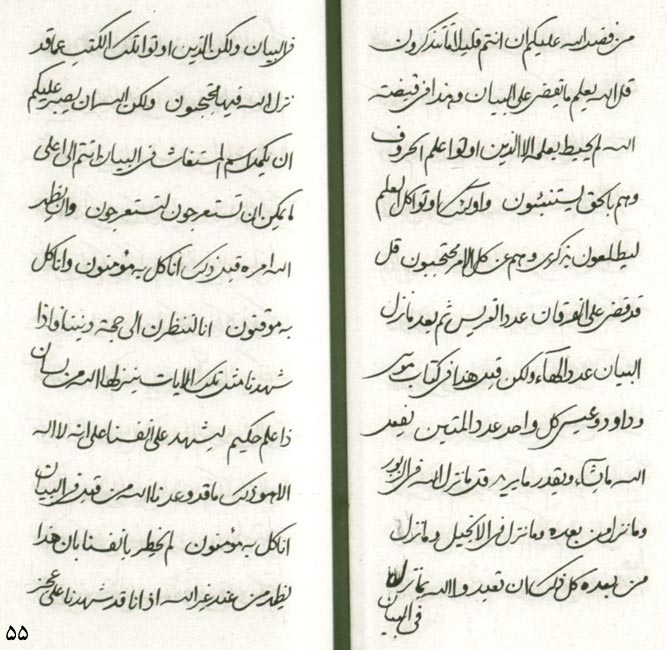 من فضل الله عليكم ان انتم قليلا ما تتذكرون
قل الله يعلم ما يقضى على البيان وهذا فى قبضته
الله لم يحيط بعلمه الا الذين اوتوا علم الحروف
وهم بالحق يستنبئون واولئك اوتوا كل العلم
ليطلعون بذكرى وهم عن كل الامر محتجبون قل
قد قضى على الفرقان عدد الغريس ثم بعد ما نزل
البيان عدد الهاء ولكن قبل هذا فى كتاب موسى
و داود و عيسى كل واحد عدد المتين يفعل
الله ما يشاء ويقدر ما يريد قد ما نزل الله فى الزبور
وما نزل من بعده وما نزل فى الانجيل وما نزل
من بعده كل ذلك ان تعبدوا الله بما نزل
فى البيان
فى البيان ولكن الذين اوتوا تلك الكتب عما قد
نزل الله فيها محتجبون ولكن الله ان يصبر عليكم
ان يكمل اسم المستغاث فى البيان انتم الى اعلى
ما يمكن ان تستعرجون لتستعرجون وان يظهر
الله امره قبل ذلك انا كل به مؤمنون وانا كل
به موقنون انا لننظرن الى حجة ديننا فاذا
شهدنا مثل تلك الايات ينزلها الله من لسان
ذا علم حكيم ليشهد على انفسنا على انه لا اله
الا هو ذلك ما قد وعدنا الله من قبل فى البيان
انا كل به مؤمنون لم يخطر بانفسنا بان هذا
يظهر من عند غير الله اذ انا قد شهدنا على عجز
٥٥